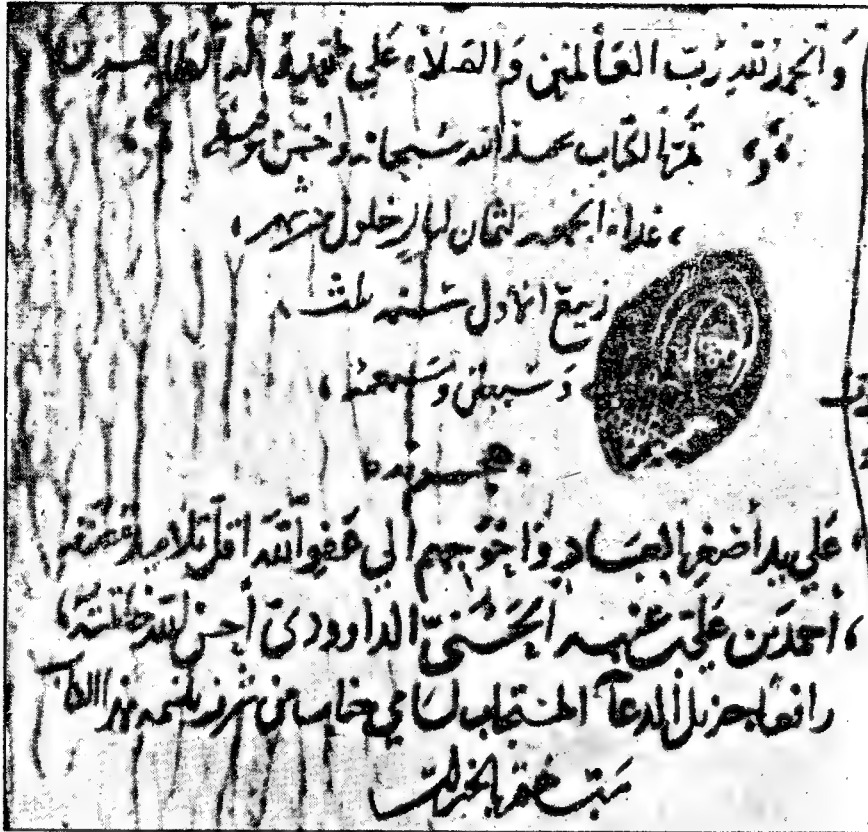 والحمد لله رب العالمين والصلاة علي محمد وآله الطاهرين
تم الكتاب بحمد الله سبحانه وحسن توفيقه
غداة الجمعه لثمان ليال خلون من شهر
ربيع الاول سنه ثلث
وسبعين وسبعمئه
هجريه
علي يد أضعف العباد وأحوجهم الي عفو الله اقل
أحمد بن علي بن عنبه الحسني الداوودي أحسن الله
رافعا لجزيل الدعآ المستجاب لسامي جناب من هذا الكتاب